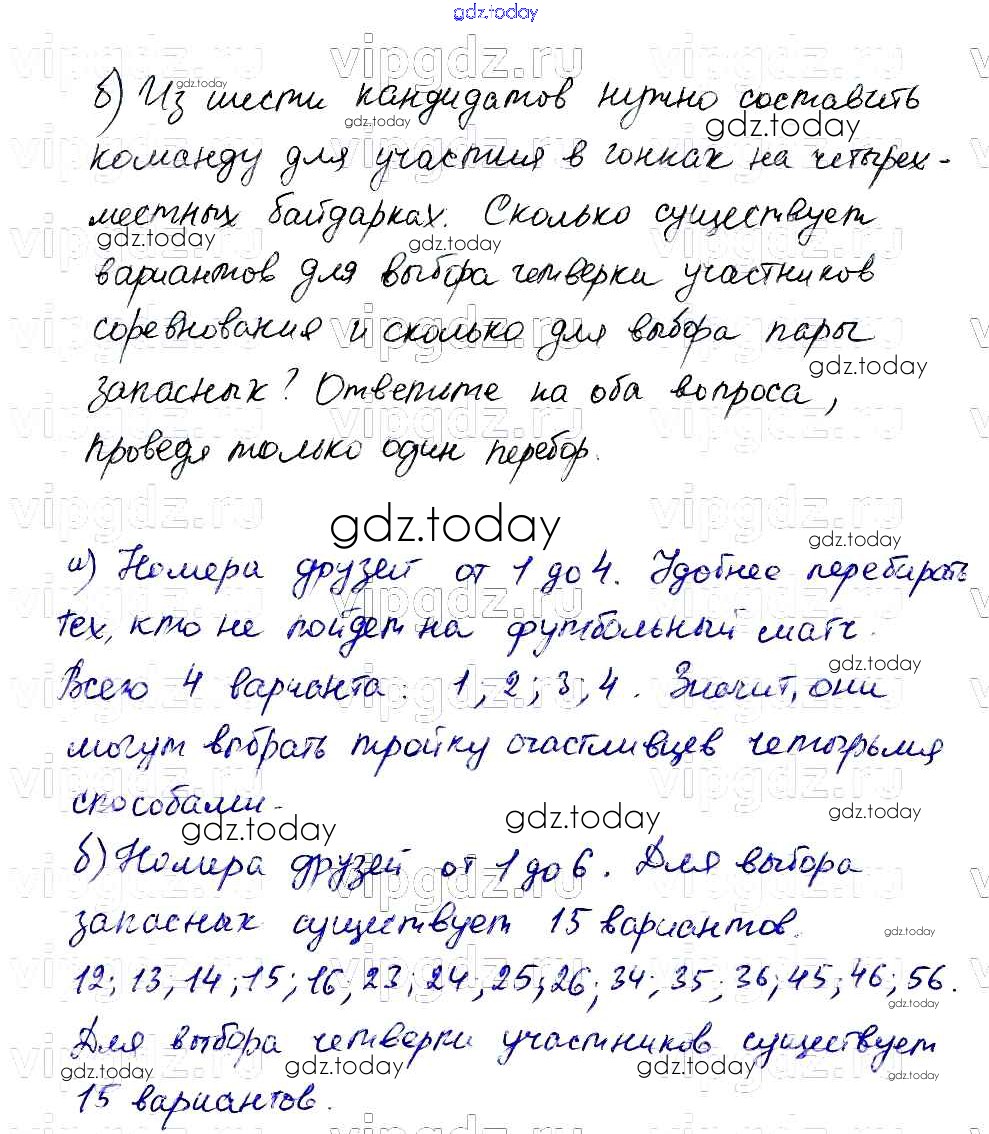 gdz.today
б) Из шести кандидатов нужно составить
команду для участия в гонках на четырех-
местных байдарках. Сколько существует
вариантов для выбора четверки участников
соревнования и сколько для выбора пары
запасных? Ответьте на оба вопроса,
проведя только один перебор.
gdz.today
а) Номера друзей от 1 до 4. Удобнее перебирать
тех, кто не пойдет на футбольный матч.
Всего 4 варианта: 1; 2; 3; 4. Значит, они
могут выбрать тройку счастливцев четырьмя
способами.
б) Номера друзей от 1 до 6. Для выбора
запасных существует 15 вариантов.
12; 13; 14; 15; 16; 23; 24; 25; 26; 34; 35; 36; 45; 46; 56.
Для выбора четверки участников существует
15 вариантов.